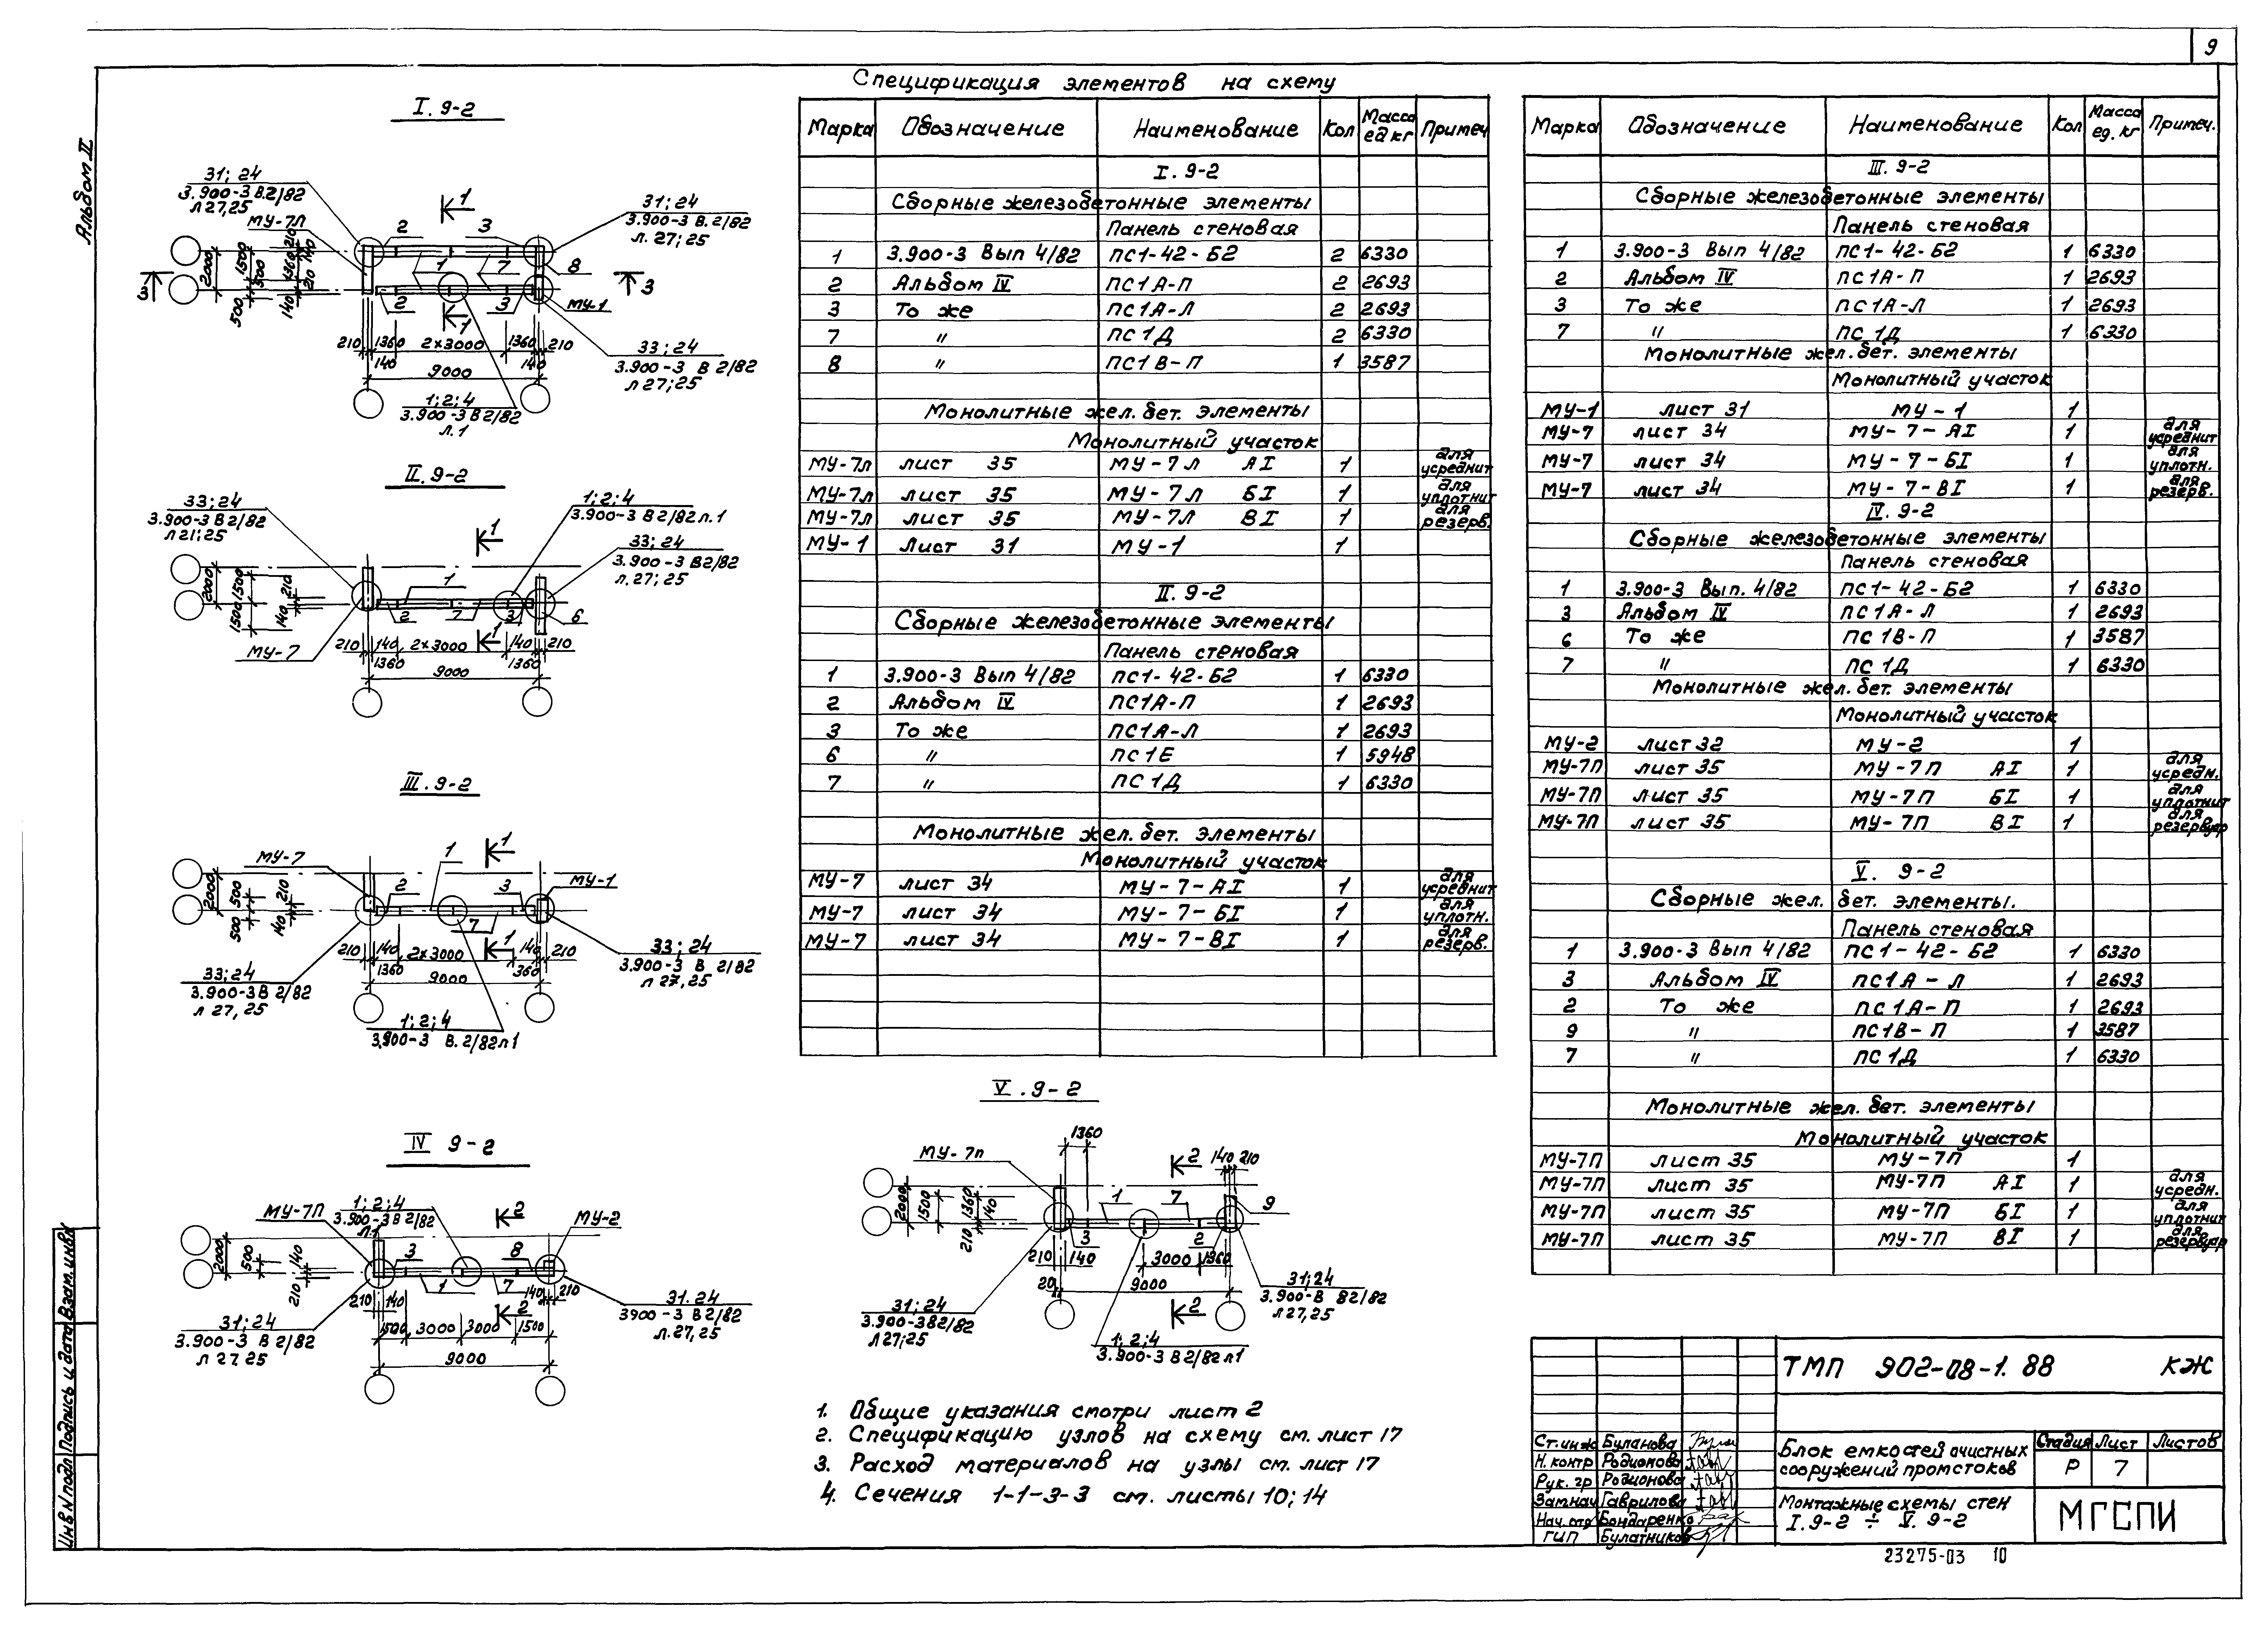 9
Альбом II
Спецификация элементов на схему
I. 9-2
31; 24
3.900-3 В.2/82
л 27,25
МУ-7Л
2
3
1
31; 24
3.900-3 В. 2/82
л. 27; 25
8
1
7
2
3
МУ-1
3
3
1
2000
1500
500
1360
210
140
500
140
210
210
1360
2×3000
1360
210
140
140
9000
33; 24
3.900-3 В 2/82
л 27; 25
1; 2; 4
3.900-3 В 2/82
л. 1
II. 9-2
33; 24
3.900-3 В 2/82
л 21; 25
1; 2; 4
3.900-3 В 2/82 л. 1
1
33; 24
3.900-3 В2/82
л. 27; 25
1
2
7
3
6
1
МУ-7
2000
1500
210
1500
140
210
140
2×3000
140
210
1360
1360
9000
III. 9-2
МУ-7
1
1
2
3
МУ-1
7
1
2000
500
210
500
140
210
140
2×3000
140
210
1360
360
9000
33; 24
3.900-3 В 2/82
л 27, 25
33; 24
3.900-3 В 2/82
л 27, 25
1; 2; 4
3.900-3 В. 2/82 л 1
IV 9-2
МУ-7П
1; 2; 4
3.900-3 В 2/82
л.1
2
МУ-2
3
8
1
7
2
2000
500
140
210
210
140
140
210
1500
3000
3000
1500
9000
31; 24
3.900-3 В 2/82
л 27. 25
31. 24
3900-3 В 2/82
л. 27, 25
V. 9-2
1360
МУ-7п
2
140
210
1
7
9
3
2
2000
1500
1360
140
210
210
140
3000
1360
20
9000
2
31; 24
3.900-3 В2/82
л 27; 25
31; 24
3.900-В В2/82
л 27, 25
1; 2; 4
3.900-3 В 2/82 л 1
Марка Обозначение Наименование Кол Масса ед кг Примеч
I. 9-2
Сборные железобетонные элементы
Панель стеновая
1 3.900-3 Вып 4/82 ПС1-42-Б2 2 6330
2 Альбом IV ПС1А-П 2 2693
3 То же ПС1А-Л 2 2693
7 " ПС1Д 2 6330
8 " ПС1В-П 1 3587
Монолитные жел. бет. элементы
Монолитный участок
МУ-7л лист 35 МУ-7л АI 1 для усреднит
МУ-7л лист 35 МУ-7л БI 1 для уплотнит
МУ-7л лист 35 МУ-7Л ВI 1 для резерв.
МУ-1 Лист 31 МУ-1 1
II. 9-2
Сборные железобетонные элементы
Панель стеновая
1 3.900-3 Вып 4/82 ПС1-42-Б2 1 6330
2 Альбом IV ПС1А-П 1 2693
3 То же ПС1А-Л 1 2693
6 " ПС1Е 1 5948
7 " ПС1Д 1 6330
Монолитные жел. бет. элементы
Монолитный участок
МУ-7 лист 34 МУ-7-АI 1 для усреднит
МУ-7 лист 34 МУ-7-БI 1 для уплотн.
МУ-7 лист 34 МУ-7-ВI 1 для резерв.
Марка Обозначение Наименование Кол Масса ед. кг Примеч.
III. 9-2
Сборные железобетонные элементы
Панель стеновая
1 3.900-3 Вып 4/82 ПС1-42-Б2 1 6330
2 Альбом IV ПС1А-П 1 2693
3 То же ПС1А-Л 1 2693
7 " ПС1Д 1 6330
Монолитные жел. бет. элементы
Монолитный участок
МУ-1 лист 31 МУ-1 1
МУ-7 лист 34 МУ-7-АI 1 для усреднит
МУ-7 лист 34 МУ-7-БI 1 для уплотн.
МУ-7 лист 34 МУ-7-ВI 1 для резерв.
IV. 9-2
Сборные железобетонные элементы
Панель стеновая
1 3.900-3 Вып. 4/82 ПС1-42-Б2 1 6330
3 Альбом IV ПС1А-Л 1 2693
6 То же ПС1В-П 1 3587
7 " ПС1Д 1 6330
Монолитные жел. бет. элементы
Монолитный участок
МУ-2 лист 32 МУ-2 1
МУ-7П лист 35 МУ-7П АI 1 для усредн.
МУ-7П лист 35 МУ-7П БI 1 для уплотнит
МУ-7П лист 35 МУ-7П ВI 1 для резервуар
V. 9-2
Сборные жел. бет. элементы.
Панель стеновая
1 3.900-3 Вып 4/82 ПС1-42-Б2 1 6330
3 Альбом IV ПС1А-Л 1 2693
2 То же ПС1А-П 1 2693
9 " ПС1В-П 1 3587
7 " ПС1Д 1 6330
Монолитные жел. бет. элементы
Монолитный участок
МУ-7П лист 35 МУ-7П 1
МУ-7П лист 35 МУ-7П АI 1 для усредн.
МУ-7П лист 35 МУ-7П БI 1 для уплотнит
МУ-7П лист 35 МУ-7П ВI 1 для резервуар
1. Общие указания смотри лист 2
2. Спецификацию узлов на схему см. лист 17
3. Расход материалов на узлы см. лист 17
4. Сечения 1-1-3-3 см. листы 10; 14
ТМП 902-08-1. 88 КЖ
Ст. инж Буланова
Н. контр Родионова
Рук. гр Родионова
Зам нач Гаврилова
Нач. отд Бондаренко
ГИП Булатников
Блок емкостей очистных
сооружений промстоков
Стадия Лист Листов
Р 7
Монтажные схемы стен
I. 9-2 ÷ V. 9-2
МГСПИ
23275-03 10
Инв N подл
Подпись и дата
Взам. инв N